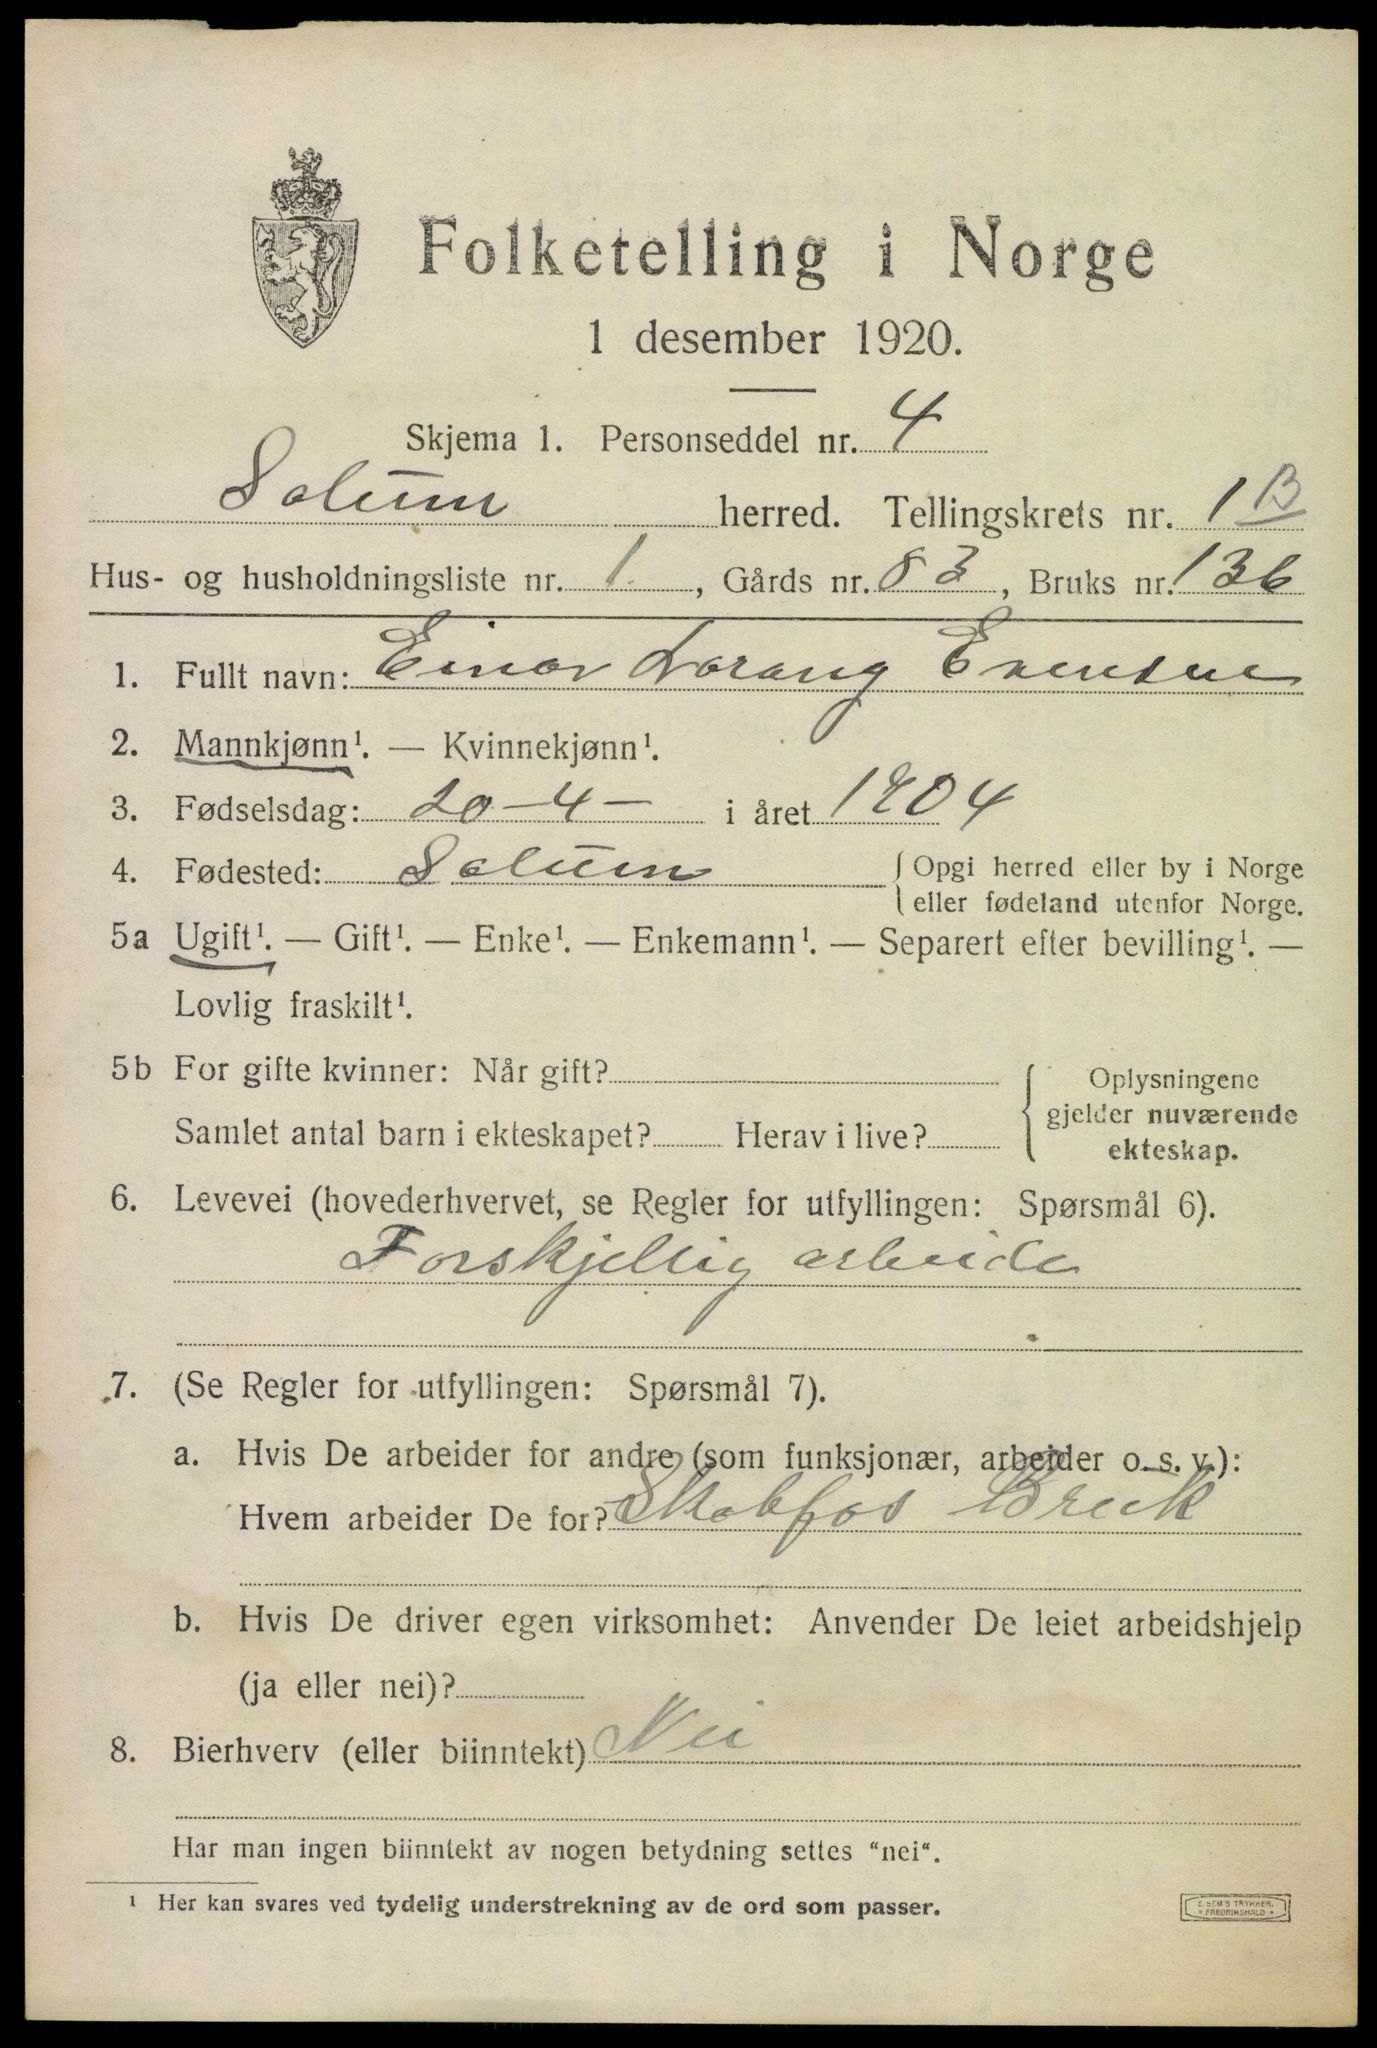 Folketelling i Norge
1 desember 1920.
Skjema 1. Personseddel nr. 4
Solum herred. Tellingskrets nr. 1 B
Hus- og husholdningsliste nr. 1, Gårds nr. 83, Bruks nr. 136
1. Fullt navn: Einar Lorang Evensen
2. Mannkjønn¹. — Kvinnekjønn¹.
3. Fødselsdag: 20-4- i året 1904
4. Fødested: Solum {Opgi herred eller by i Norge
eller fødeland utenfor Norge.
5a Ugift¹. — Gift¹. — Enke¹. — Enkemann¹. — Separert efter bevilling¹. —
Lovlig fraskilt¹.
5b For gifte kvinner: Når gift?
Samlet antal barn i ekteskapet? Herav i live?
Oplysningene
gjelder nuværende
ekteskap.
6. Levevei (hovederhvervet, se Regler for utfyllingen: Spørsmål 6).
Forskjellig arbeide
7. (Se Regler for utfyllingen: Spørsmål 7).
a. Hvis De arbeider for andre (som funksjonær, arbeider o. s. v.):
Hvem arbeider De for? Skotfos Bruk
b. Hvis De driver egen virksomhet: Anvender De leiet arbeidshjelp
(ja eller nei)?
8. Bierhverv (eller biinntekt) Nei
Har man ingen biinntekt av nogen betydning settes "nei".
¹ Her kan svares ved tydelig understrekning av de ord som passer.
E. SEM'S TRYKKER.
FREDRIKSHALD